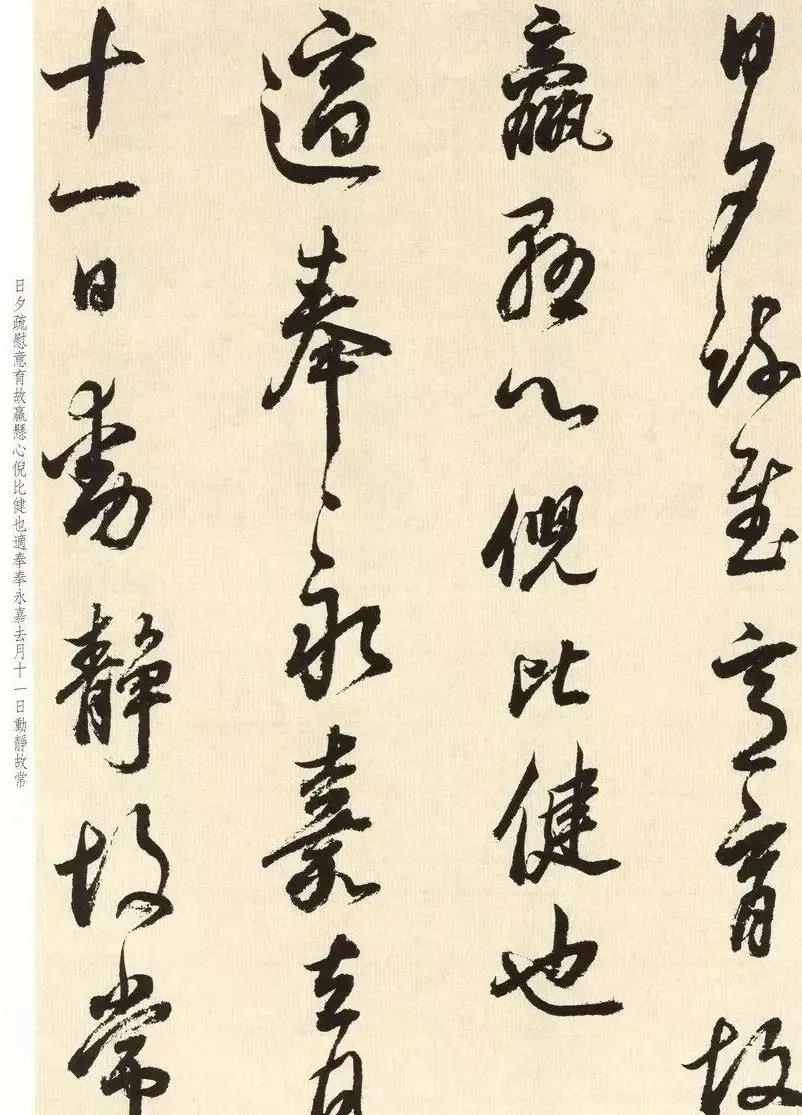 日夕疏慰意育故
羸懸心倪比健也
適奉奉永嘉去月
十一日動靜故常
日夕疏慰意育故羸懸心倪比健也適奉奉永嘉去月十一日動靜故常